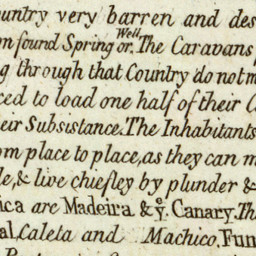 ountry very barren and des
n found Spring or Well. The Caravans
g through that Country do not m
ced to load one half of their C
eir Subsistance. The Inhabitants
om place to place, as they can m
le, & live chiefley by plunder &
ica are Madeira & ye. Canary. Th
al, Caleta and Machico. Fun